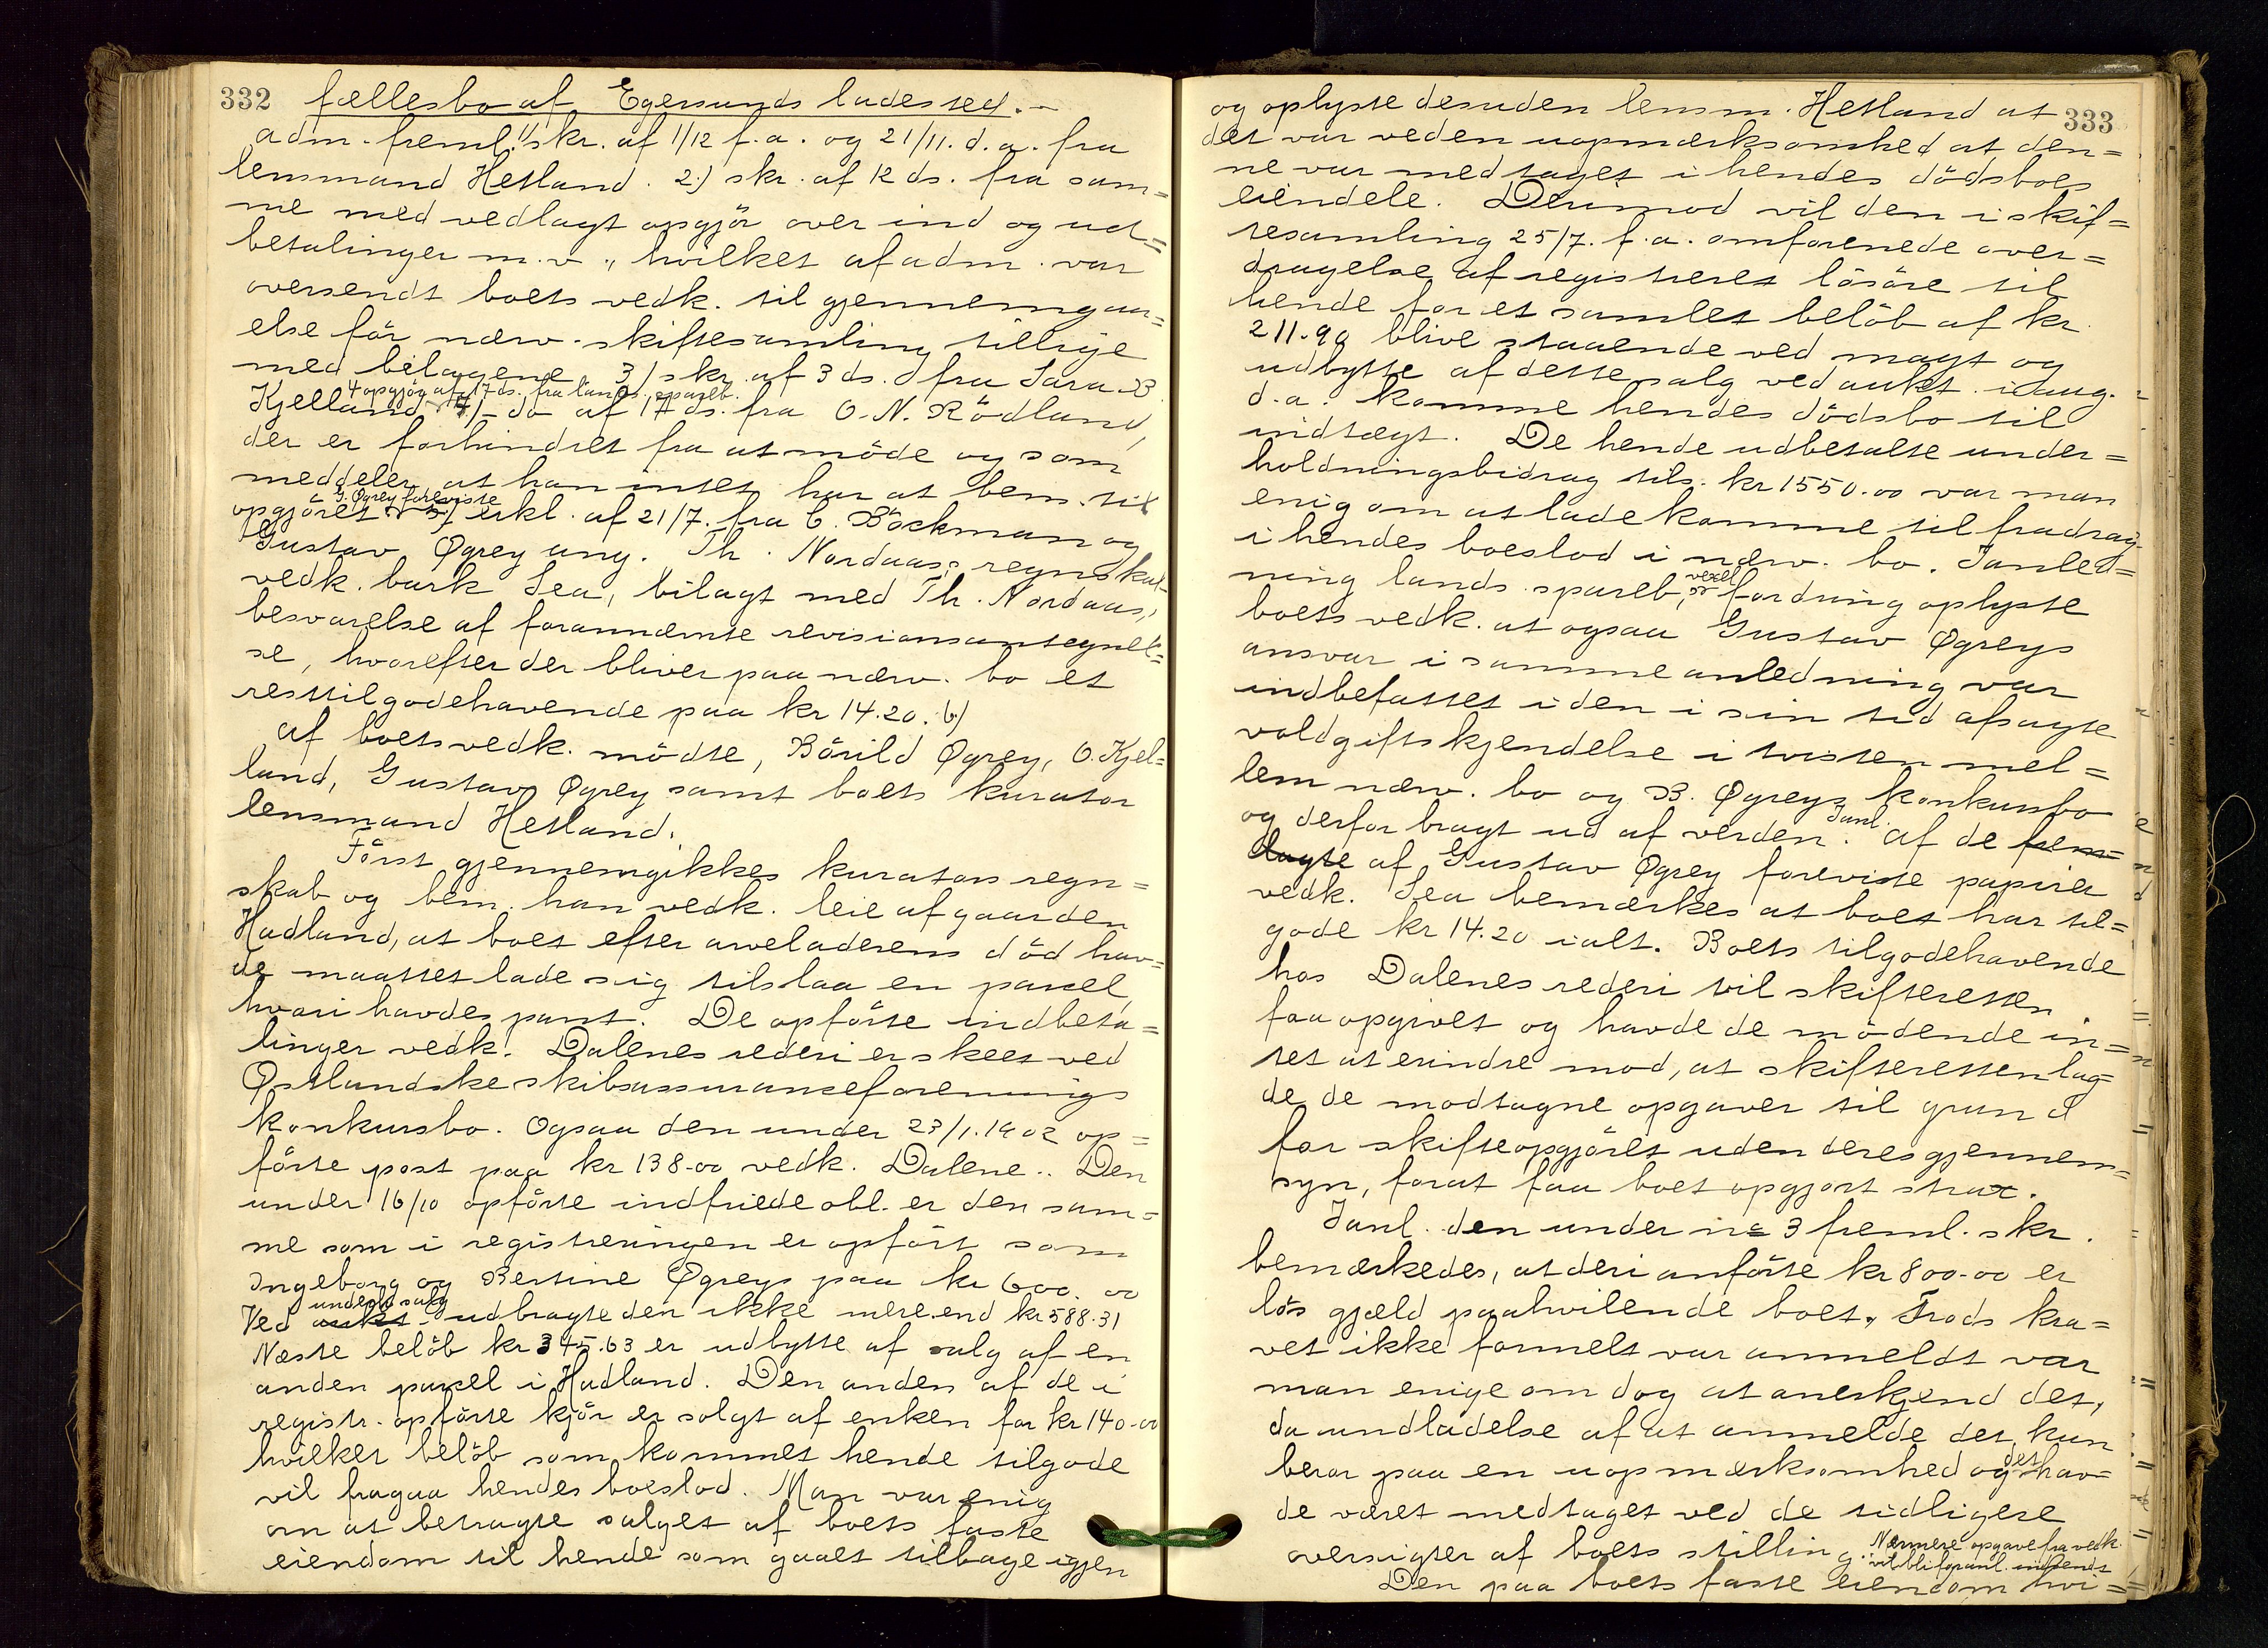 332 fællesbo af Egersunds ladested.-
adm. freml. 1/ skr. af 1/12 f.a. og 21/11. d.a. fra
lensmand Hetland. 2) skr. af 12 ds. fra sam=
me med vedlagt opgjör over ind og ud=
betalinger m.v., hvilket af adm. var
oversendt boets vedk. til gjennemgaa=
else för nærv. skiftesamling tillige
med bilagene 3/ skr. af 3 ds. fra Sara B
4 opgjör af 17 ds. fra lands. spareb.
Kjelland do af 17 ds. fra O. N. Rödland,
der er forhindret fra at möde og som
meddeler at han intet har at bem. til
G. Øgrey foreviste
opgjöret 5/ erkl. af 21/7. fra C. Böckman og
Gustav Øgrey ang. Th. Nordaas's regnskab
vedk. bark Lea, bilagt med Th. Nordaas,
besvarelse af forannævnte revisionsantegnel=
se, hvorefter der bliver paa nærv. bo et
resttilgodehavende paa kr 14.20. 6)
af boets vedk. mödte, Bårild Øgrey, O. Kjel=
land, Gustav Øgrey samt boets kurator
lensmand Hetland.
Först gjennemgikkes kurators regn=
skab og bem. han vedk. leie af gaarden
Hadland, at boet efter arveladerens död hav=
de maattet lade sig tilslaa en parcel,
hvori havdes pant. De opförte indbeta=
linger vedk. Dalenes rederi er skeet ved
Østlandske skibsassuranceforenings
konkursbo. Ogsaa den under 23/1.1902 op=
förte post paa kr 138-00 vedk. Dalene.. Den
under 16/10 opförte indfriede obl. er den sam=
me som i registreringen er opfört som
Ingeborg og Bertine Øgreys paa kr 600.00
underh. salg
Ved aukt. udbragte den ikke mere end kr 588.31
Næste belöb kr 345.63 er udbytte af salg af en
anden parcel i Hadland. Den anden af de i
registr. opförte kjör er solgt af enken for kr 140-00
hvilket belöb som kommet hende tilgode
vil fragaa hendes boeslod. Man var enig
om at betragte salget af boets faste
eiendom til hende som gaaet tilbage igjen
og oplyste desuden lensm. Hetland at 333
det var ved en uopmærksomhed at den=
ne var medtaget i hendes dödsboes
eiendele. Derimod vil den i skif=
tesamling 25/7. f.a. omforenede over=
dragelse af registreret lösöre til
hende for et samlet belöb af kr.
211.90 blive staaende ved magt og
udbytte af dette salg ved aukt. i aug.
d.a. komme hendes dödsbo til
indtægt. De hende udbetalte under=
holdningsbidrag tils. kr 1550.00 var man
enig om at lade komme til fradrag
i hendes boeslod i nærv. bo. I anled=
vexel
ning lands spareb,s fordring oplyste
boets vedk. at ogsaa Gustav Øgreys
ansvar i samme anledning var
indbefattet i den i sin tid afsagte
voldgiftskjendelse i tvisten mel=
lem nærv. bo og B. Øgreys konkursbo
Ianl.
og derfor bragt ud af verden. af de frem=
lagte af Gustav Øgrey foreviste papirer
vedk. Lea bemærkes at boet har til=
gode kr 14.20 ialt. Boets tilgodehavende
hos Dalenes rederi vil skifteretten
faa opgivet og havde de mödende in=
tet at erindre mod, at skifteretten lag=
de de modtagne opgaver til grund
for skifteopgjöret uden deres gjennem=
syn, forat faa boet opgjort strax.
Ianl. den under no 3 freml. skr.
bemærkedes, at deri anförte kr 800-00 er
lös gjæld paahvilende boet. Trods kra=
vet ikke formelt var anmeldt var
man enige om dog at anerkjend det,
da undladelse af at anmelde det, kun
beror paa en uopmærksomhed og det hav=
de været medtaget ved de tidligere
oversigter af boets stilling. Nærmere opgave fra vedk.
vil bli foranl. indsendt
Den paa boets faste eiendom hvi=